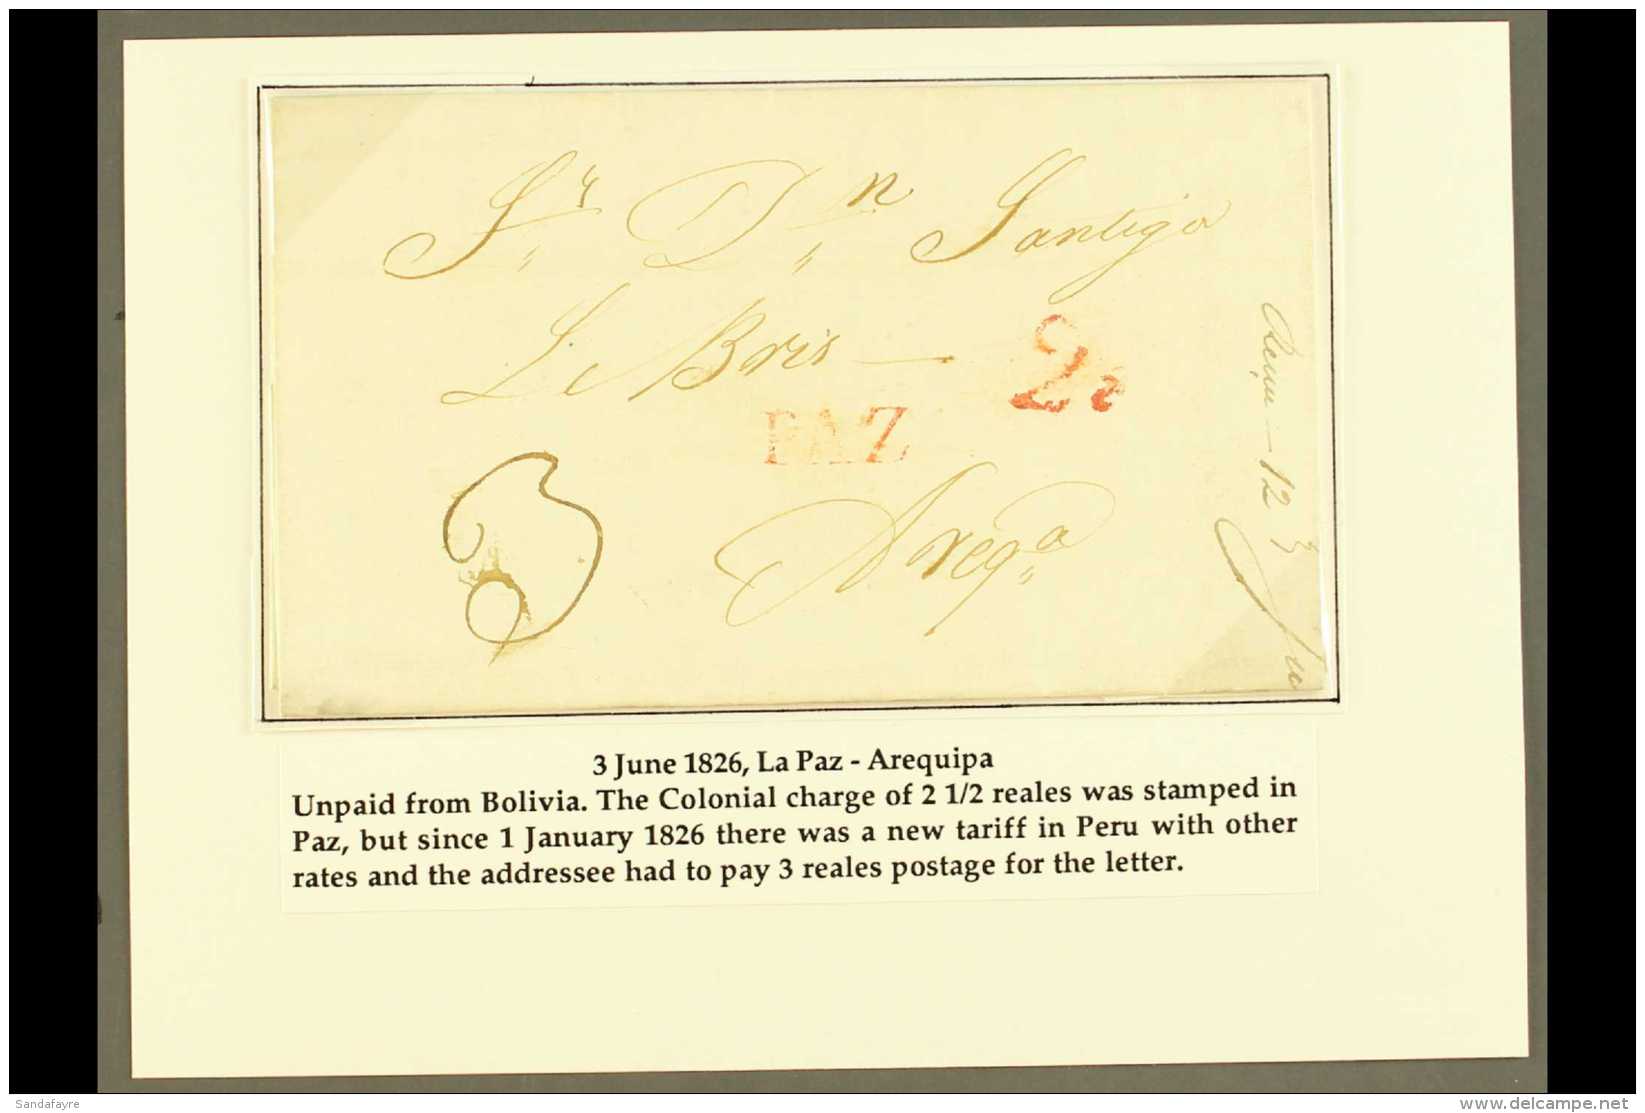 Sr Dn Santiago
Le Bris —
2½
PAZ
3
Areqa
12
3 June 1826, La Paz - Arequipa
Unpaid from Bolivia. The Colonial charge of 2 1/2 reales was stamped in
Paz, but since 1 January 1826 there was a new tariff in Peru with other
rates and the addressee had to pay 3 reales postage for the letter.
Sandafayre
www.delcampe.net